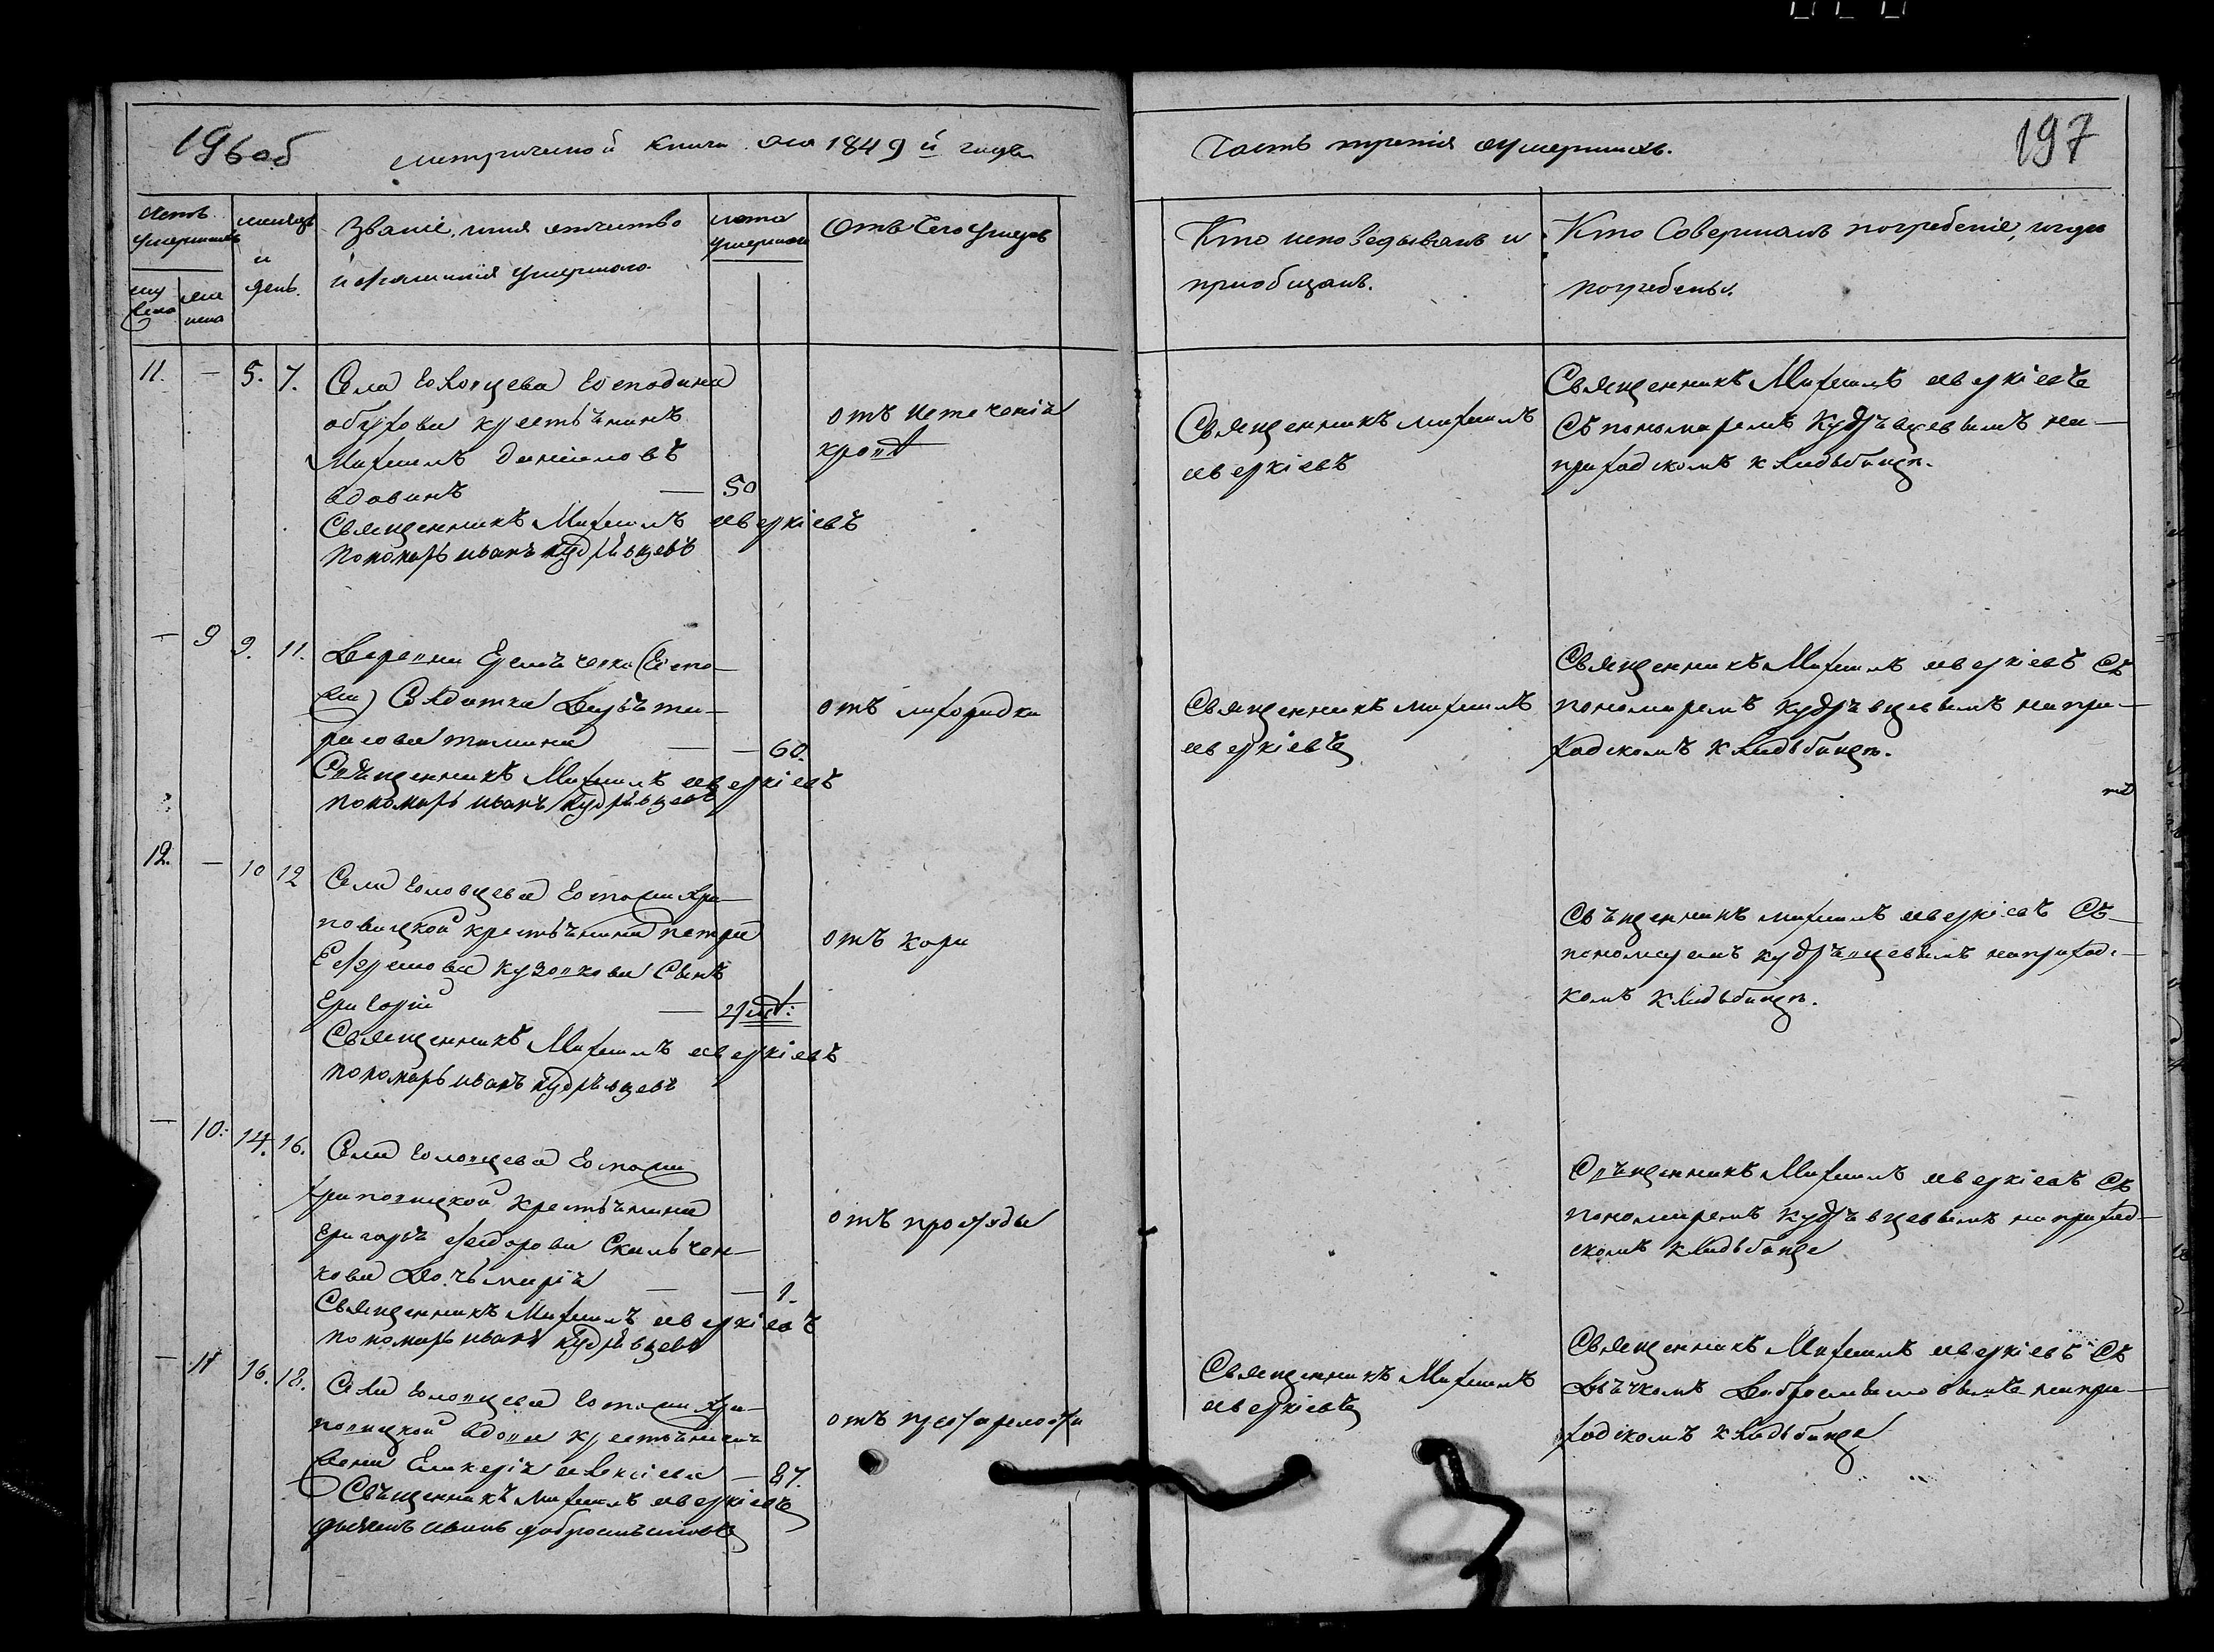 196 об
метрической книги на 1849й годъ
Часть третія о умершихъ.
197
Счетъ умершихъ
мужеска
женска
месяцъ и день.
Званіе, имя отчество
и фамилия умершаго.
лета умершаго
Отъ чего умеръ
Кто исповедывалъ и
приобщалъ.
Кто Совершалъ погребеніе, и где
погребены.
11. — 5. 7.
Села Головцева Господина
обухова крестьянинъ
Михаилъ даниловъ
вдовинъ — 50
Священникъ Михаилъ аверкіевъ
пономарь иванъ кудрявцевъ
отъ истеченія
крови
Священникъ михаилъ
аверкіевъ
Священникъ Михаилъ аверкіевъ
Съ пономаремъ кудрявцевымъ на
приходскомъ кладбище.
— 9 9. 11.
Деревни (Госпо-
жи) Солдатка Дарья
— — 60.
Священникъ Михаилъ аверкіевъ
пономарь иванъ кудрявцевъ
отъ лихорадки
Священникъ михаилъ
аверкіевъ
Священникъ Михаилъ аверкіевъ Съ
пономаремъ кудрявцевымъ на при-
ходскомъ кладбище.
12. — 10 12
Села Головцева Госпожи Хри-
повицкой крестьянина петра
кузовкова Сынъ
Григорій — 2
Священникъ Михаилъ аверкіевъ
пономарь иванъ кудрявцевъ
отъ кори
Священникъ михаилъ аверкіевъ Съ
пономаремъ кудрявцевымъ на приходс-
комъ кладбище.
— 10. 14. 16.
Села Головцева Госпожи
Хриповицкой крестьянина
Григорья федорова
Дочь марія — — 1.
Священникъ Михаилъ аверкіевъ
пономарь иванъ кудрявцевъ
отъ простуды
Священникъ Михаилъ аверкіевъ Съ
пономаремъ кудрявцевымъ на приход-
скомъ кладбище
— 11 16. 18.
Села Головцева Госпожи Хри-
повицкой вдова крестьянская
жена Гликерія алексіева — 87.
Священникъ михаилъ аверкіевъ
дьячекъ иванъ добросмысловъ
отъ престарелости
Священникъ Михаилъ
аверкіевъ
Священникъ Михаилъ аверкіевъ Съ
Дьячкомъ Добросмысловымъ на при-
ходскомъ кладбище